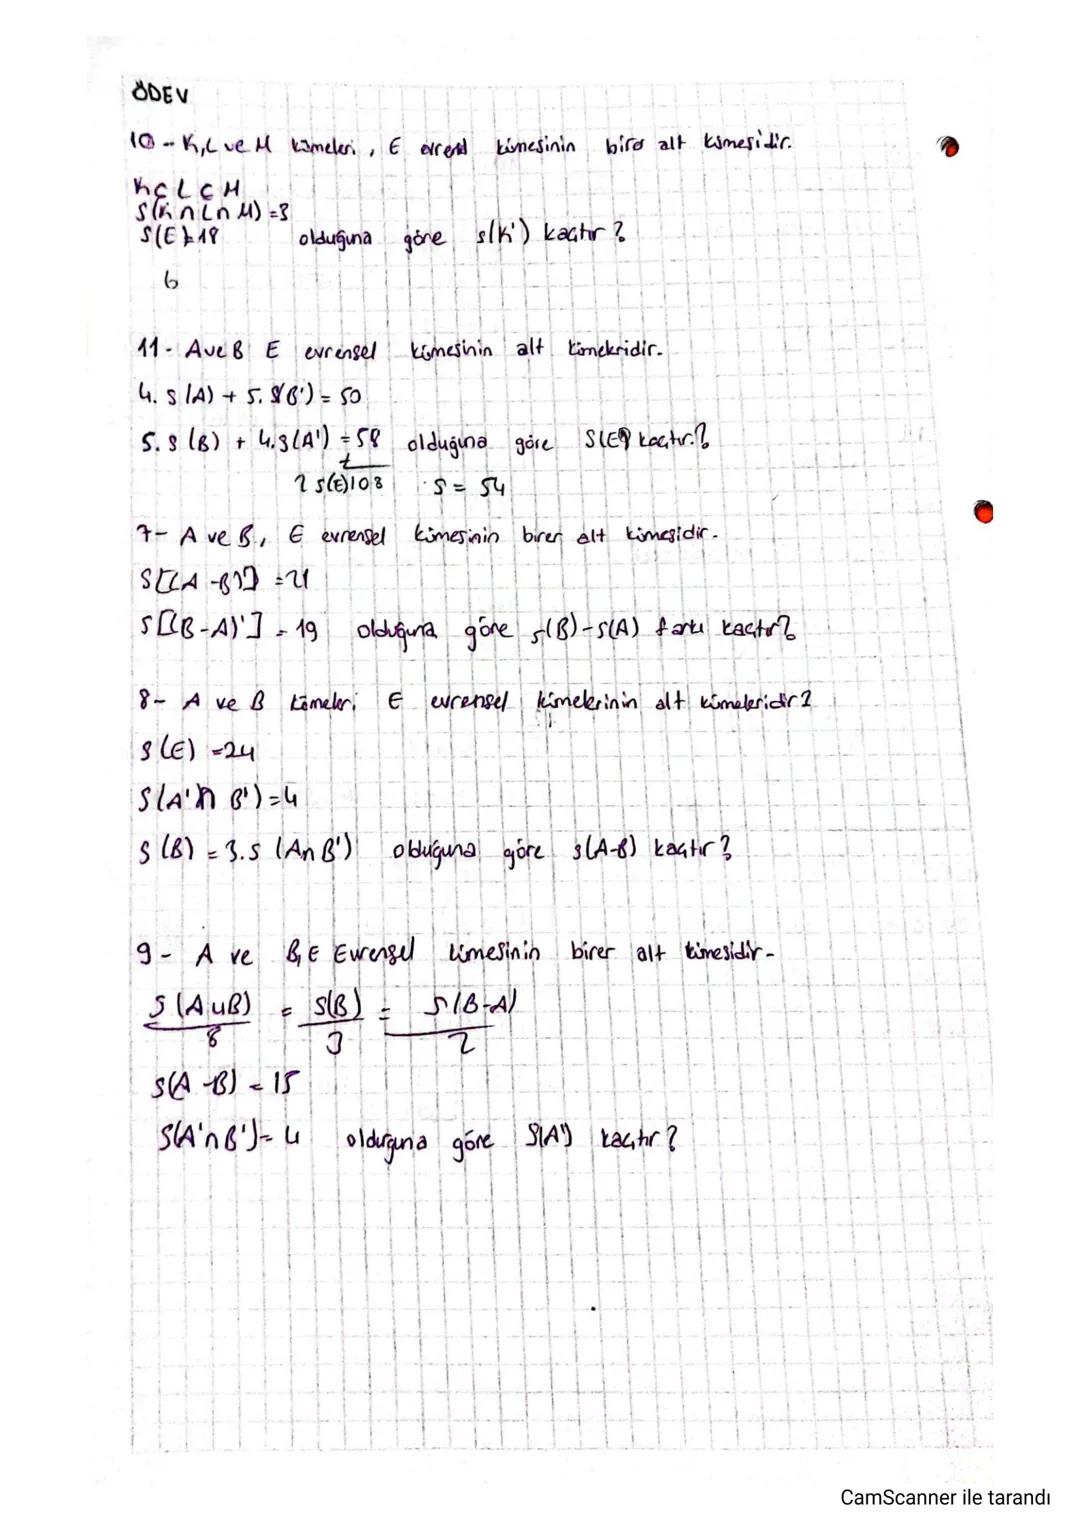 ÖDEV
10 - K, L ve M kümeleri, E evrensel kümesinin birer alt kümesidir.
K ⊂ L ⊂ M
S(K ∩ L ∩ M) = 3
S(E) = 18 olduğuna göre s(K') kaçtır ?
6
11 - A ve B E evrensel kümesinin alt kümeleridir.
4. S(A) + 5. S(B') = 50
5. S(B) + 4. S(A') = 58 olduğuna göre S(E) kaçtır.?
+
2 S(E) 108 S = 54
7- A ve B, E evrensel kümesinin birer alt kümesidir.
S[(A - B)'] = 21
S[(B-A)'] = 19 olduğuna göre s(B)-s(A) farkı kaçtır?
8- A ve B kümeleri E evrensel kümelerinin alt kümeleridir?
S(E) = 24
S(A' ∩ B') = 4
S(B) = 3.S (A ∩ B') olduğuna göre s(A-B) kaçtır ?
9- A ve B, E Evrensel kümesinin birer alt kümesidir-
S(A∪B) = S(B) = S(B-A)
8 3 2
S(A-B) = 15
S(A'∩B') = 4 olduğuna göre S(A') kaçtır ?
CamScanner ile tarandı